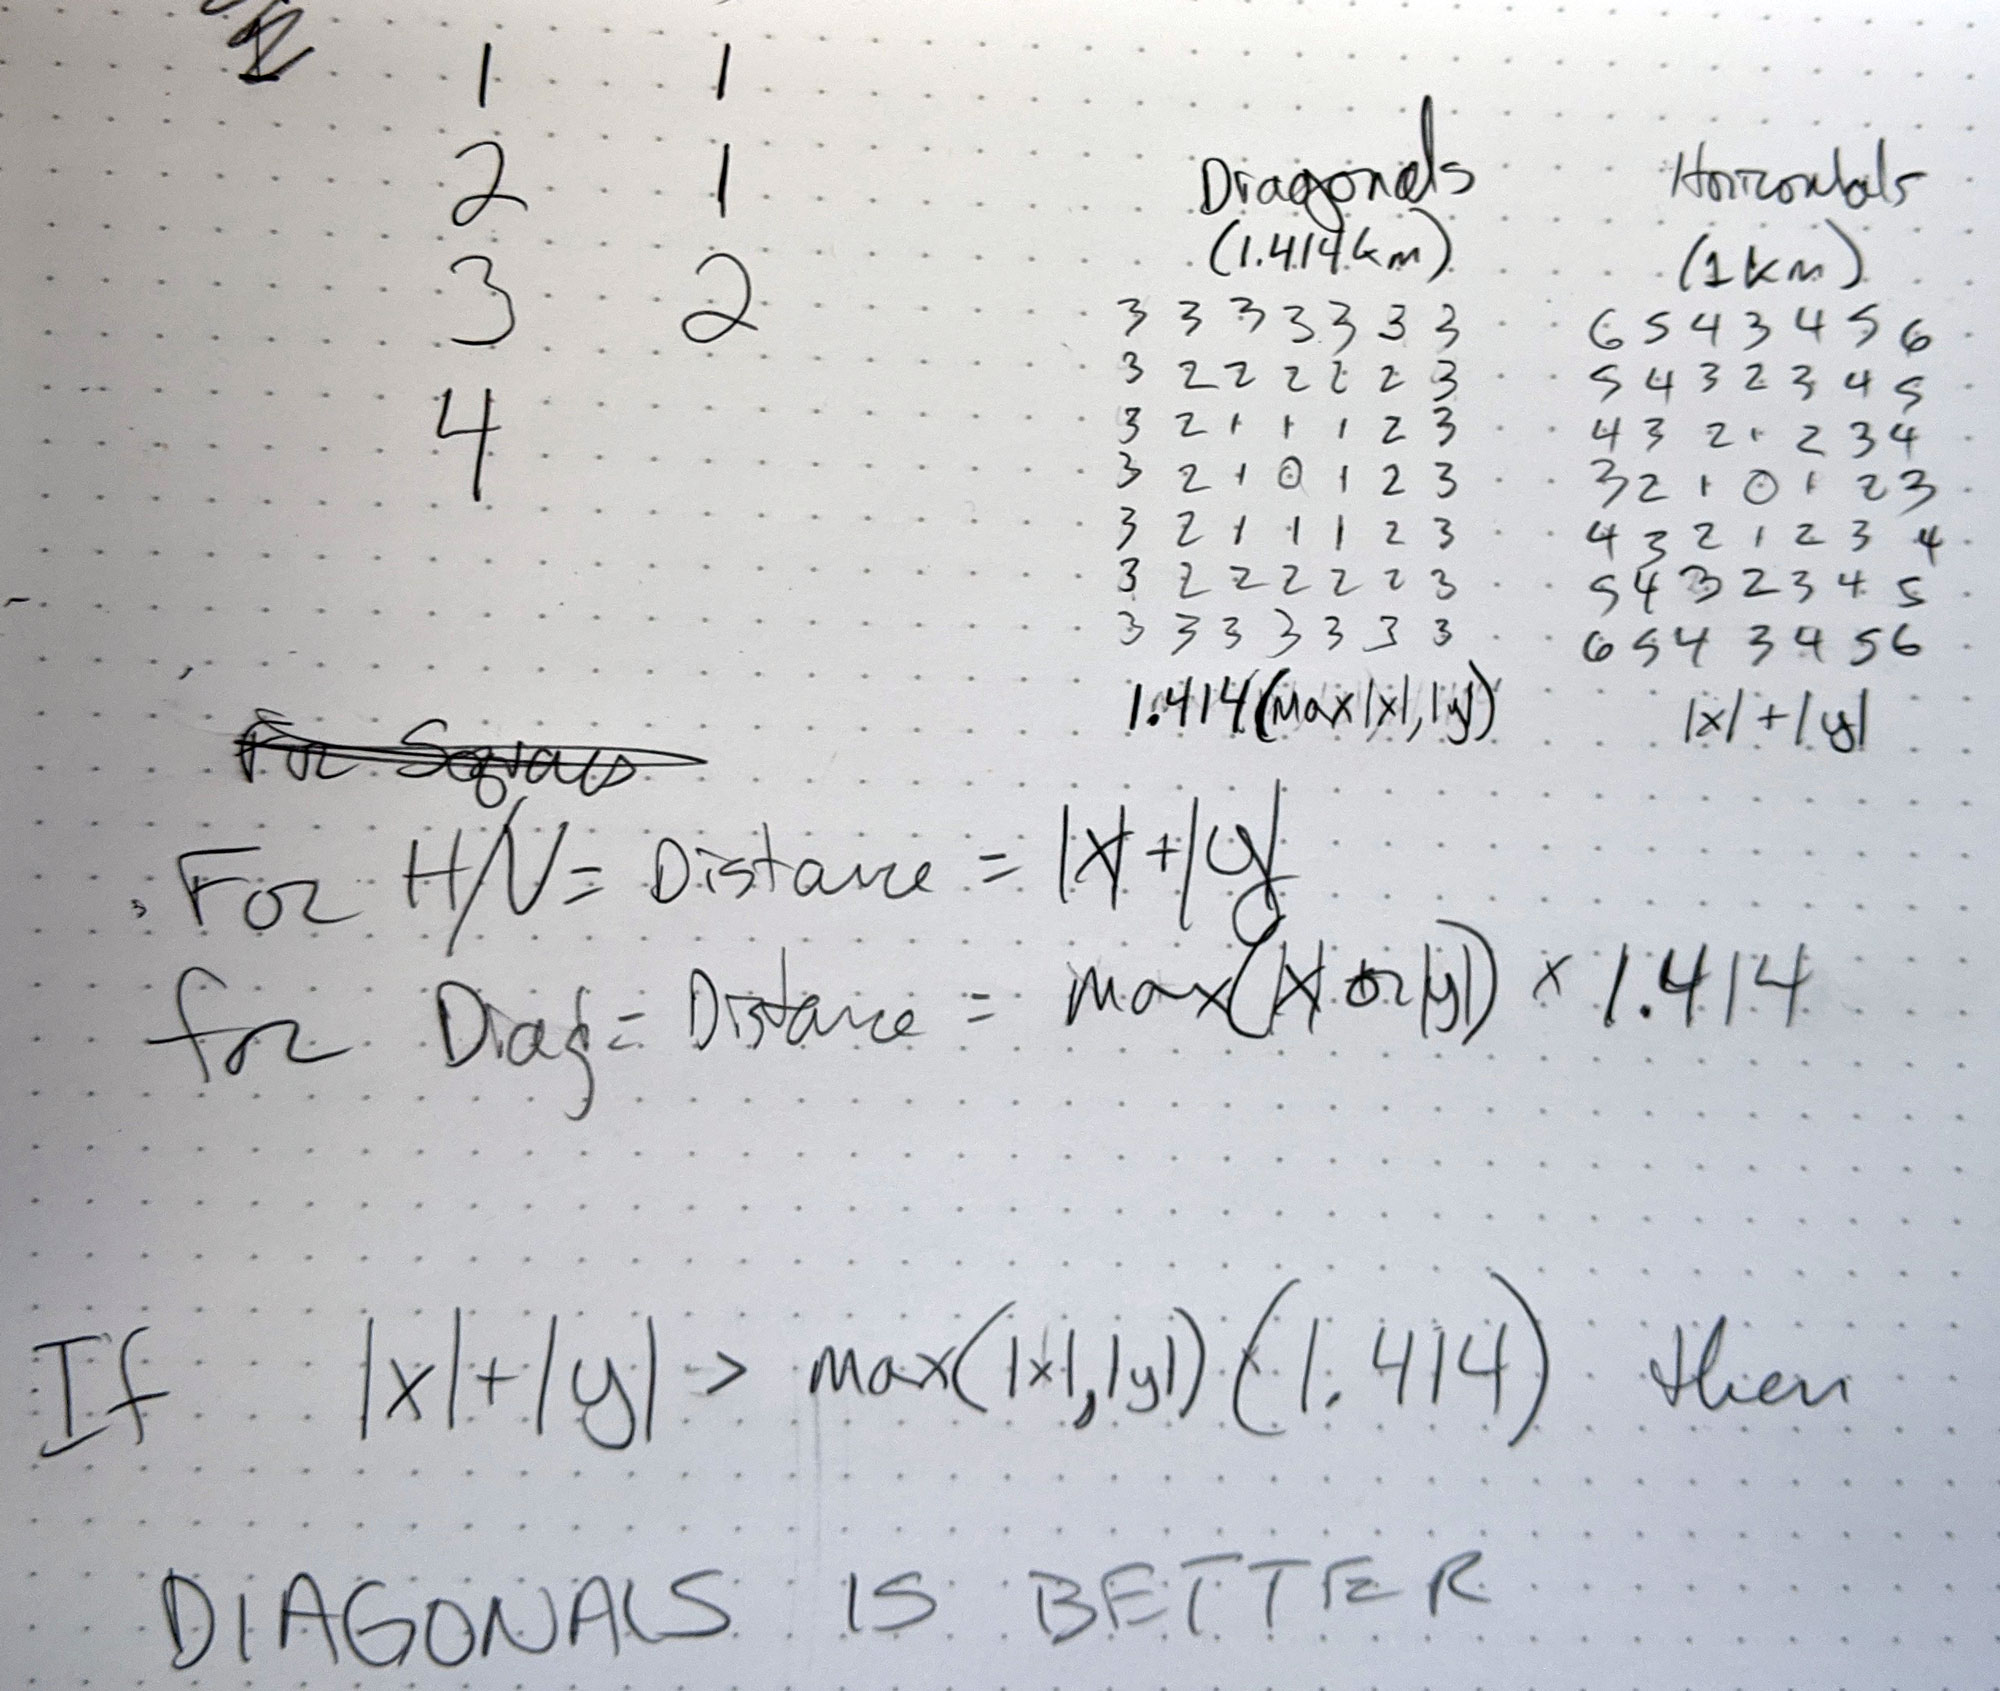 1 1
2 1
3 2
4
Diagonals
(1.414km)
3 3 3 3 3 3 3
3 2 2 2 2 2 3
3 2 1 1 1 2 3
3 2 1 0 1 2 3
3 2 1 1 1 2 3
3 2 2 2 2 2 3
3 3 3 3 3 3 3
1.414(max|x|,|y|)
Horizontals
(1km)
6 5 4 3 4 5 6
5 4 3 2 3 4 5
4 3 2 1 2 3 4
3 2 1 0 1 2 3
4 3 2 1 2 3 4
5 4 3 2 3 4 5
6 5 4 3 4 5 6
|x|+|y|
For H/V= Distance = |x|+|y|
for Diag= Distance = max(|x| or |y|) x 1.414
If |x|+|y| > max(|x|,|y|)(1.414) then
DIAGONALS IS BETTER